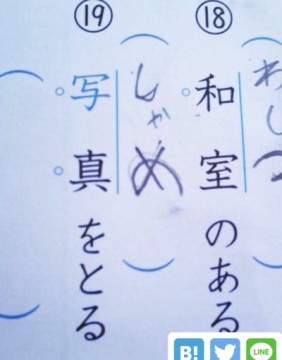 ⑱
わしつ
和室のある
⑲
しゃめ
写真をとる
B!
LINE